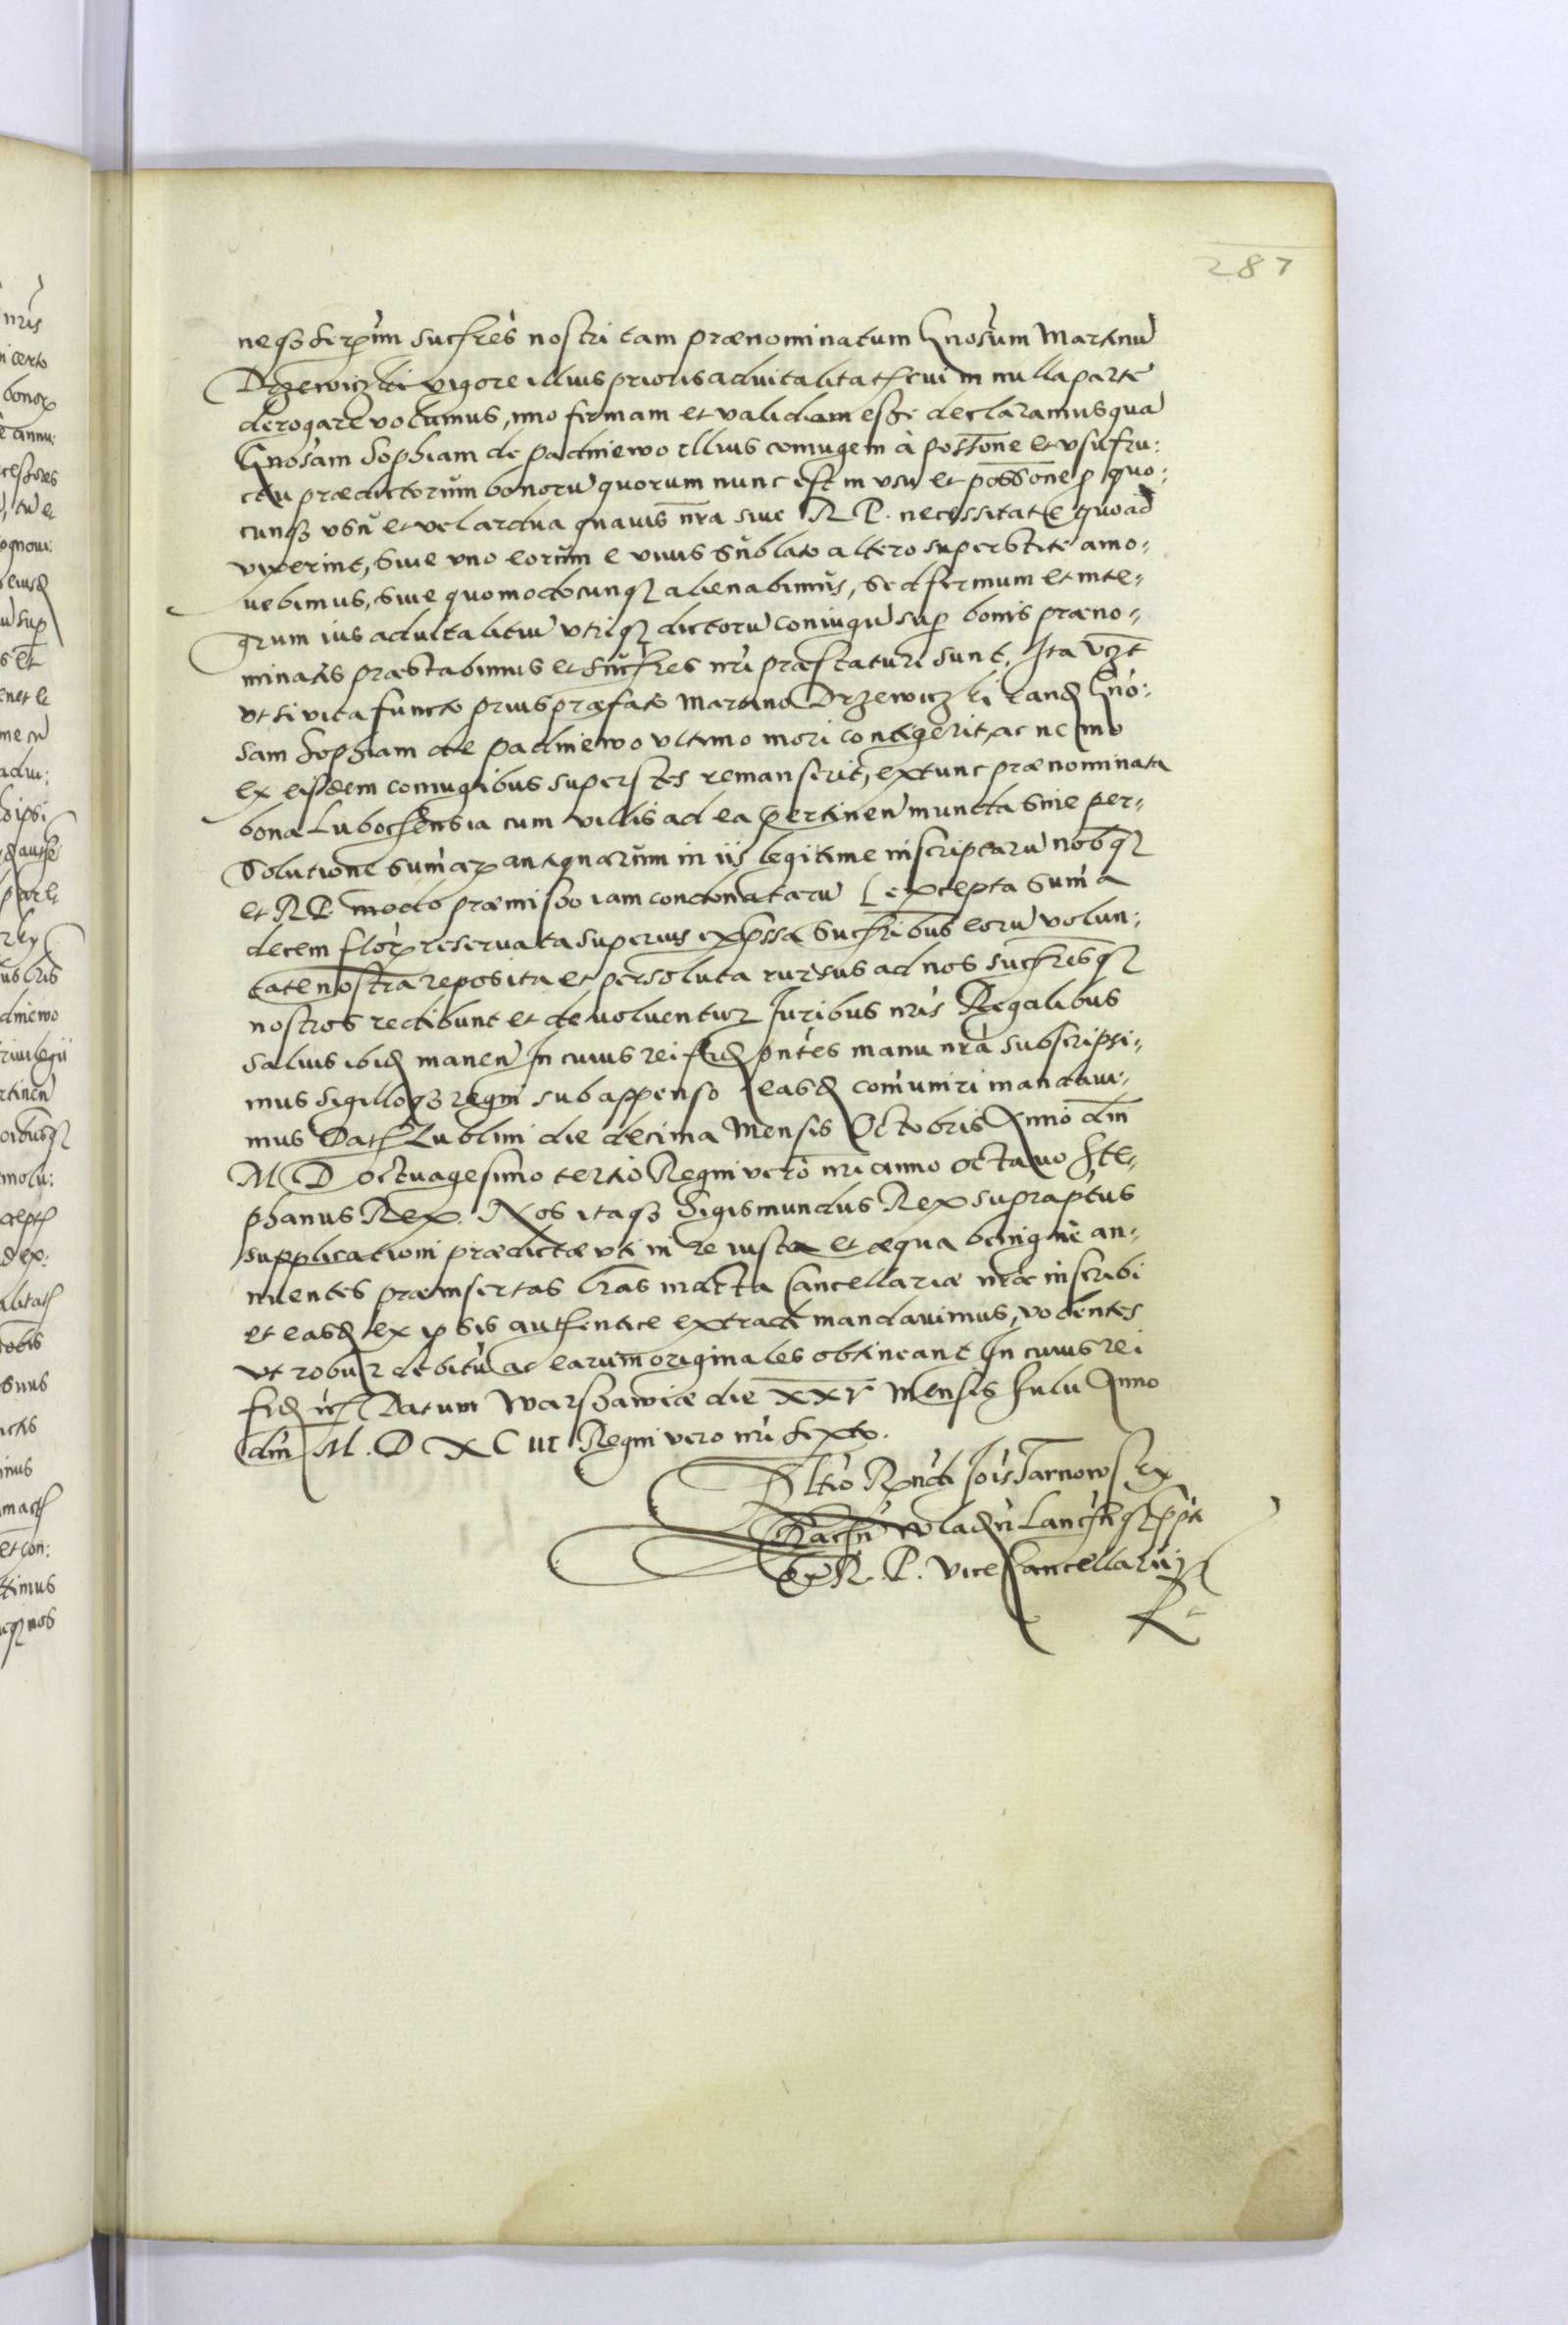 287
neqȝ serṗmi sucẛres nostri tam prænominatum Gnosum Martinū
Drzewiczki vigore illius prioris aduitalitatẛ cui in nulla parte
derogare volumus, imo firmam et validam esse declaramus quā
Gnosam Sophiam de padniewo illius coniugem à possone et vsufru:
ctu prædictorum bonorū quorum nunc est in vsu et possone p quo:
cunqȝ vsū et vel ardua quauis nra siue R P. necessitate quoad
vixerint, siue vno eorum e viuis sublato altero superstite amo:
uebimus, siue quomodocunqȝ alienabimus, sed firmum et inte:
grum ius aduitalitiū vtriqȝ dictorū coniugū sup bonis præno:
minatis præstabimus et sucẛres nri præstaturi sunt, Ita vzt
vt si vita functo prius præfato Martino Drzewiczki eand Gno:
sam Sophiam de padniewo vltimo mori contigerit, ac nemo
ex eisdem coniugibus superstes remanserit, extunc prænominata
bona Lubochensia cum villis ad ea pertinen muncta sine per:
solutione sumaȝ antiquarum in iis legitime inscriptarū nobqȝ
et R P. modo præmisso iam condonatarū (excepta suma
decem floṙ reseruata superius expssa sucẛribus eorū volun:
tate nostra reposita et persoluta rursus ad nos sucẛresqȝ
nostros redibunt et deuoluentur Iuribus nris Regalibus
saluis ibid manen In cuius rei fid pntes manu nra subscripsi:
mus sigilloqȝ regni subappenso easd comuniri mandaui:
mus Datẛ Lublini die decima Mensis Octobris Anno dm
M D octuagesimo tertio Regni vero nri anno octauo Ste:
phanus Rex. Nos itaqȝ Sigismundus Rex supraptus
supplicationi prædictæ vti in re iusta et æqua benigne an:
nuentes præinsertas lras in acta Cancellariæ nræ inscribi
et easd ex ipsis authentice extradi mandauimus, volentes
vt robur debitū ac earum originales obtineant In cuius rei
fid etc Datum Warshawiæ die XXV Mensis Iulii Anno
dm M. D XC III Regni vero nri sexto.
Rltio Rndi Iois Tarnowsky
wladn Lancẛn
R. P. Vice Cancellarii